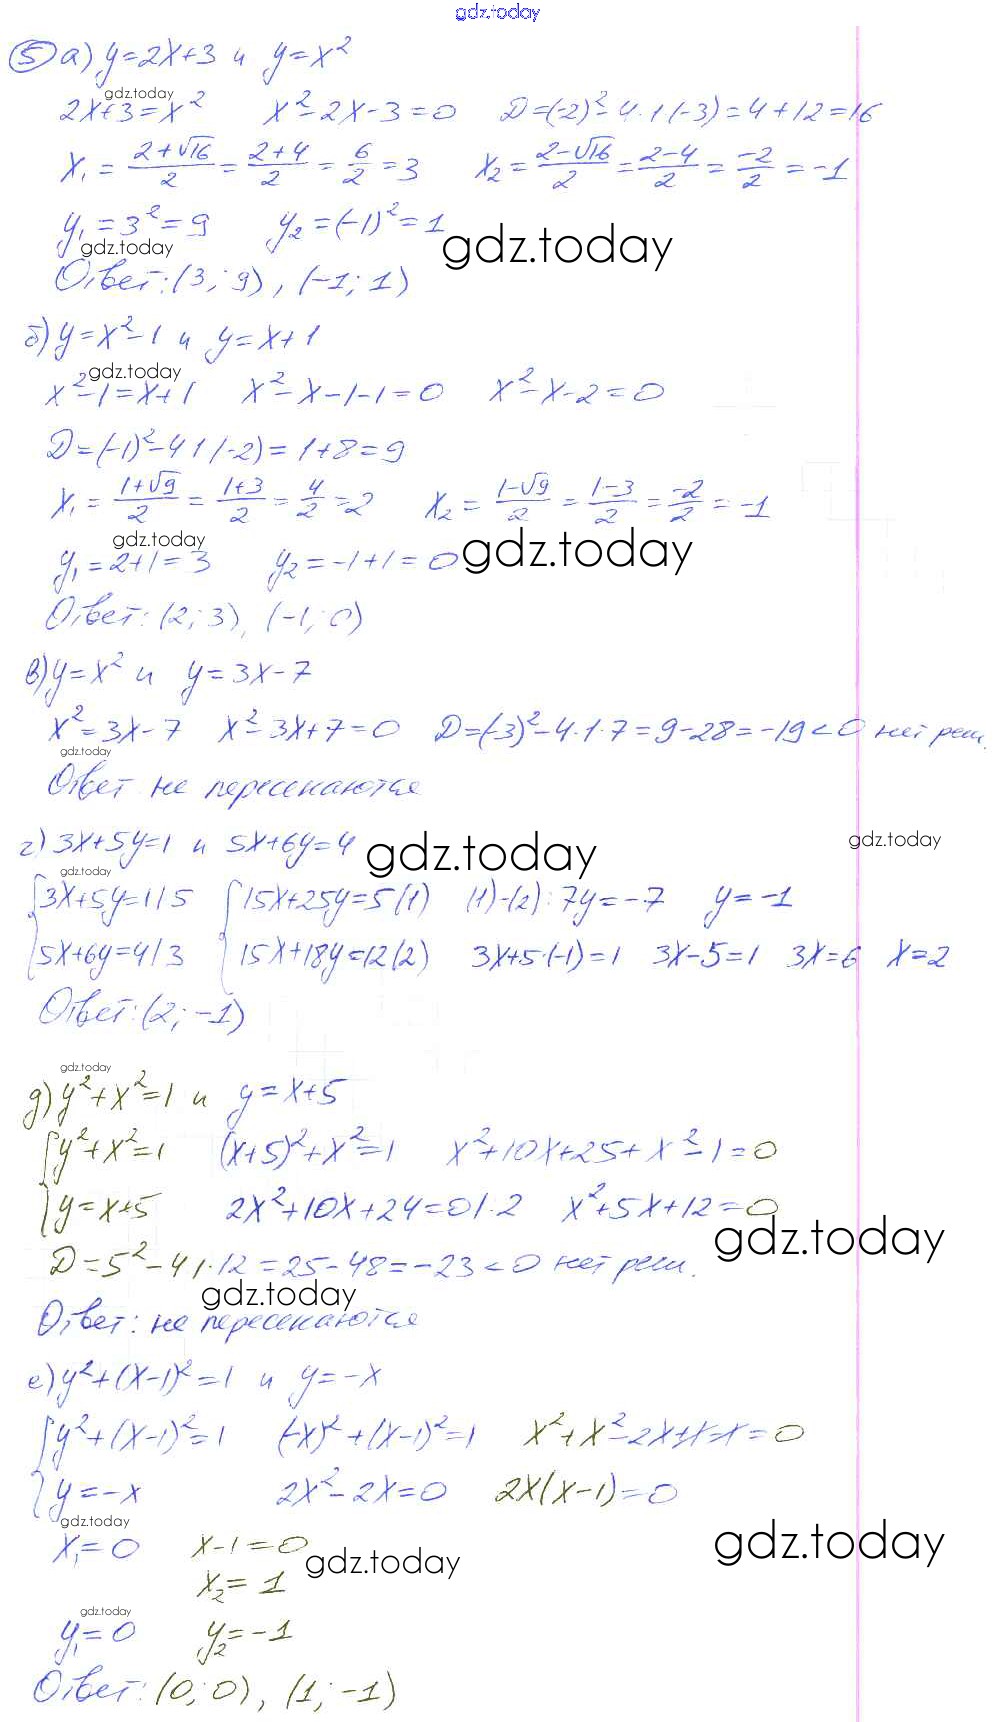 gdz.today
5 а) y=2x+3 и y=x²
gdz.today
2x+3=x² x²-2x-3=0 D=(-2)²-4·1(-3)=4+12=16
x₁=(2+√16)/2=(2+4)/2=6/2=3 x₂=(2-√16)/2=(2-4)/2=-2/2=-1
y₁=3²=9 y₂=(-1)²=1 gdz.today
gdz.today
Ответ: (3; 9), (-1; 1)
б) y=x²-1 и y=x+1
gdz.today
x²-1=x+1 x²-x-1-1=0 x²-x-2=0
D=(-1)²-4·1(-2)=1+8=9
x₁=(1+√9)/2=(1+3)/2=4/2=2 x₂=(1-√9)/2=(1-3)/2=-2/2=-1
gdz.today
y₁=2+1=3 y₂=-1+1=0 gdz.today
Ответ: (2; 3), (-1; 0)
в) y=x² и y=3x-7
x²=3x-7 x²-3x+7=0 D=(-3)²-4·1·7=9-28=-19<0 нет реш.
gdz.today
Ответ не пересекаются
г) 3x+5y=1 и 5x+6y=4 gdz.today gdz.today
gdz.today
{3x+5y=1/5 {15x+25y=5(1) (1)-(2): 7y=-7 y=-1
5x+6y=4/3 15x+18y=12(2) 3x+5·(-1)=1 3x-5=1 3x=6 x=2
Ответ: (2; -1)
gdz.today
д) y²+x²=1 и y=x+5
{y²+x²=1 (x+5)²+x²=1 x²+10x+25+x²-1=0
y=x+5 2x²+10x+24=0/·2 x²+5x+12=0
gdz.today
D=5²-4·1·12=25-48=-23<0 нет реш.
gdz.today
Ответ: не пересекаются
е) y²+(x-1)²=1 и y=-x
{y²+(x-1)²=1 (-x)²+(x-1)²=1 x²+x²-2x+1-1=0
y=-x 2x²-2x=0 2x(x-1)=0
gdz.today
x₁=0 x-1=0 gdz.today gdz.today
x₂=1
gdz.today
y₁=0 y₂=-1
Ответ: (0; 0), (1; -1)